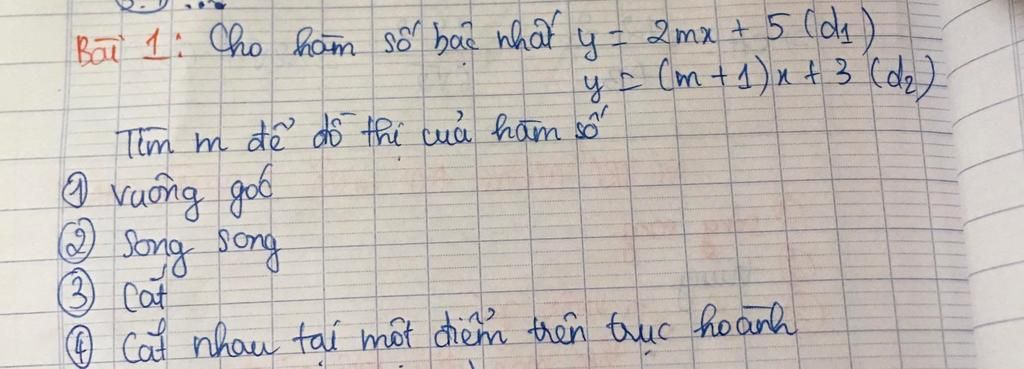 Bài 1: Cho hàm số bậc nhất y = 2mx + 5 (d1)
y = (m + 1)x + 3 (d2)
Tìm m để đồ thị của hàm số
① Vuông góc
② Song song
③ Cắt
④ Cắt nhau tại một điểm trên trục hoành